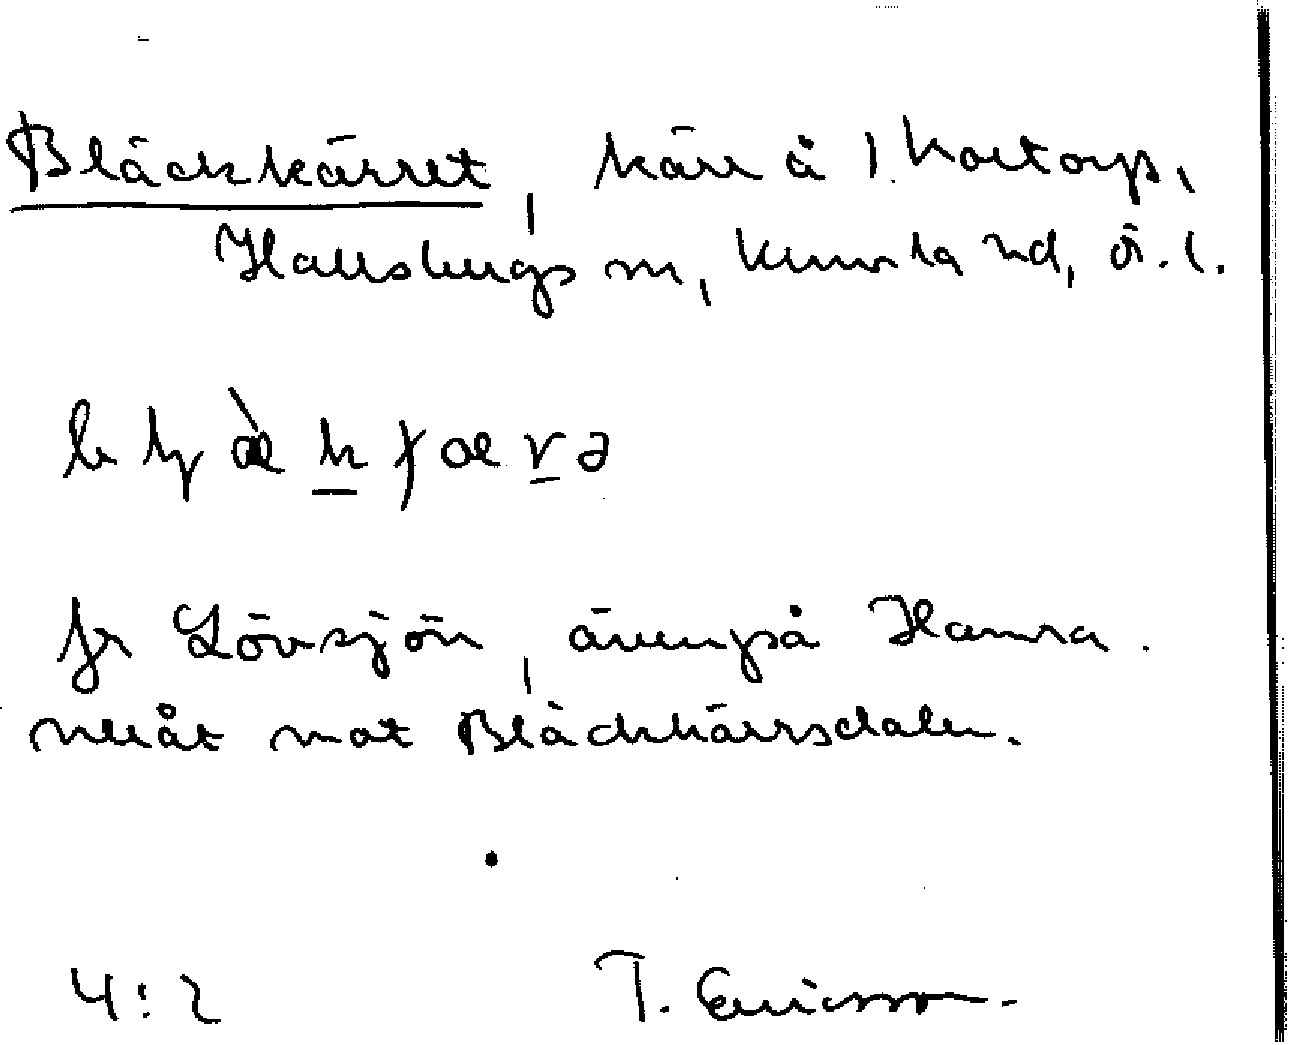 Bläckkärret, kärr å 1 Kortorp,
Hallsbergs sn, Kumla hd, ö. l.
fr Lövsjön, även på Hamra.
neråt mot Bläckkärrsdalen.
4:2 T. Ericsson.